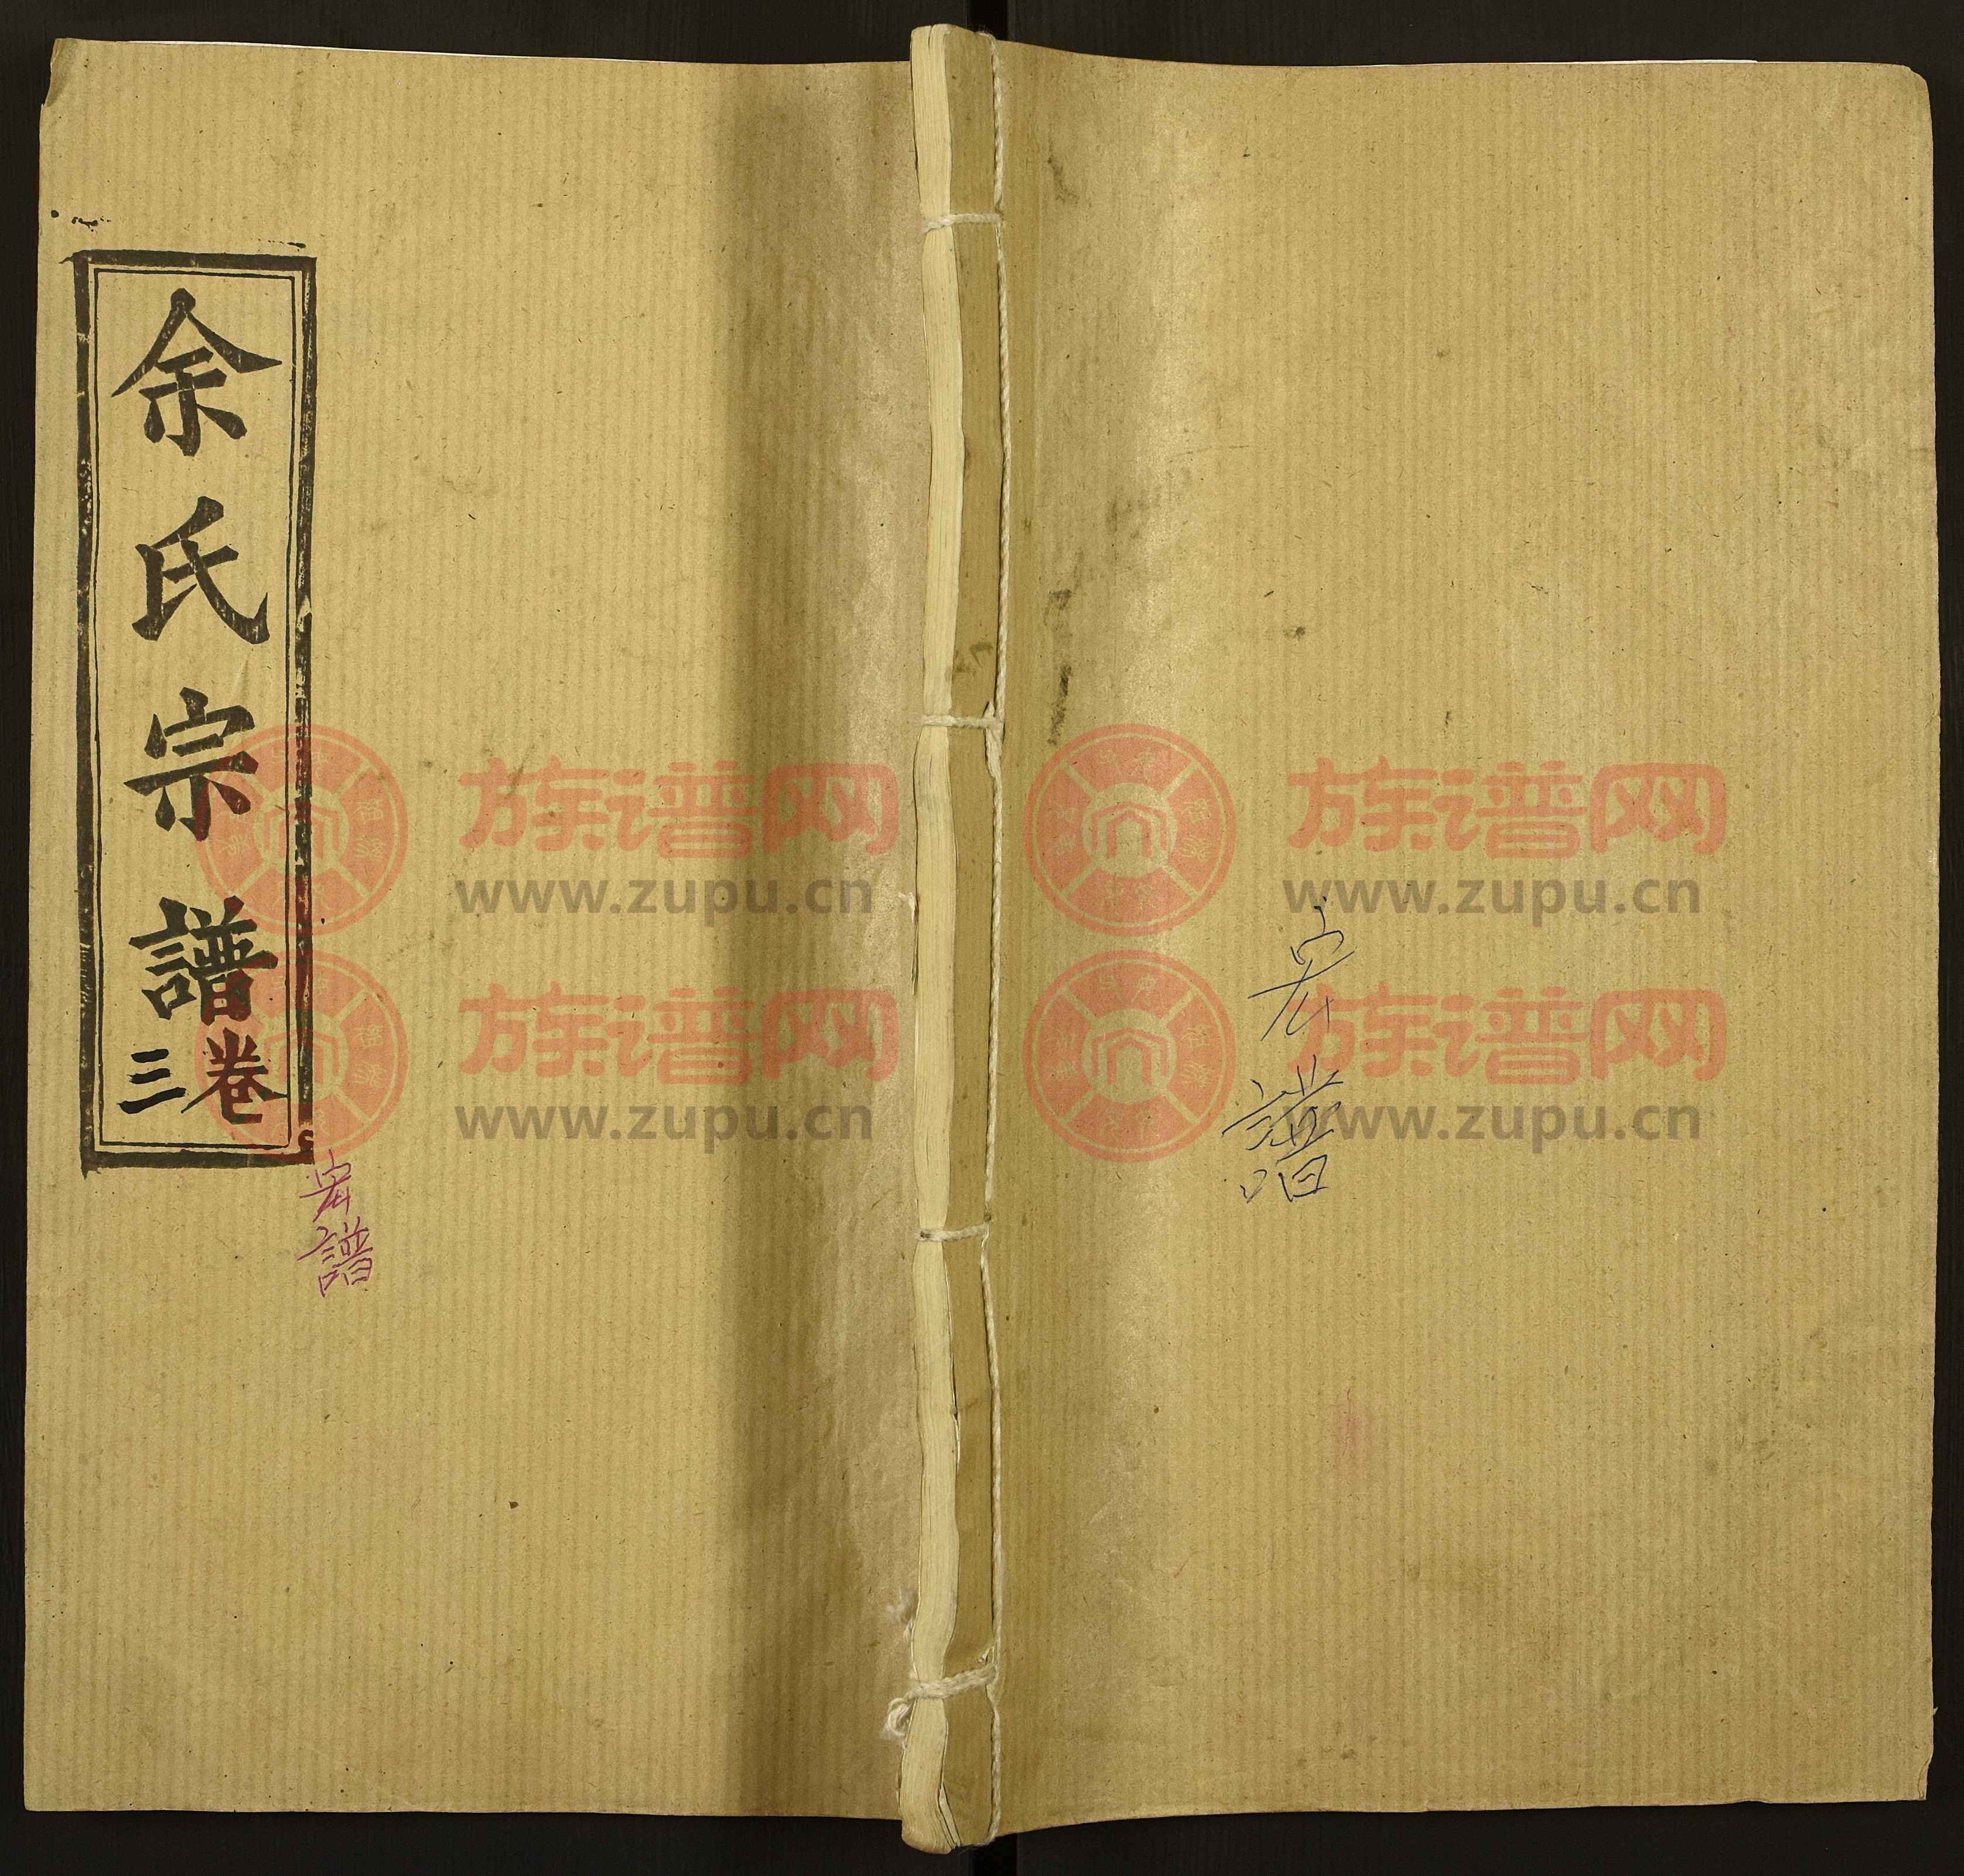 余氏宗譜
卷三
宏譜
族谱网
www.zupu.cn
族谱网
www.zupu.cn
宏譜
族谱网
www.zupu.cn
族谱网
www.zupu.cn